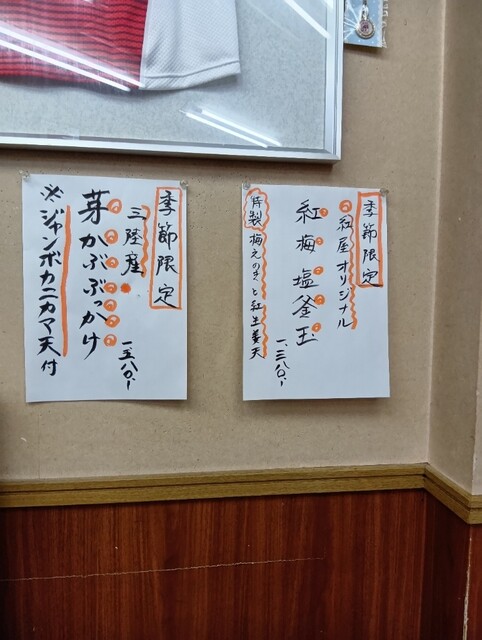 季節限定
紅屋オリジナル
紅梅塩釜玉
一、三八〇.-
特製 梅えのきと紅生姜天
季節限定
三陸産
芽かぶぶっかけ
一、五八〇.-
※ジャンボカニカマ天付